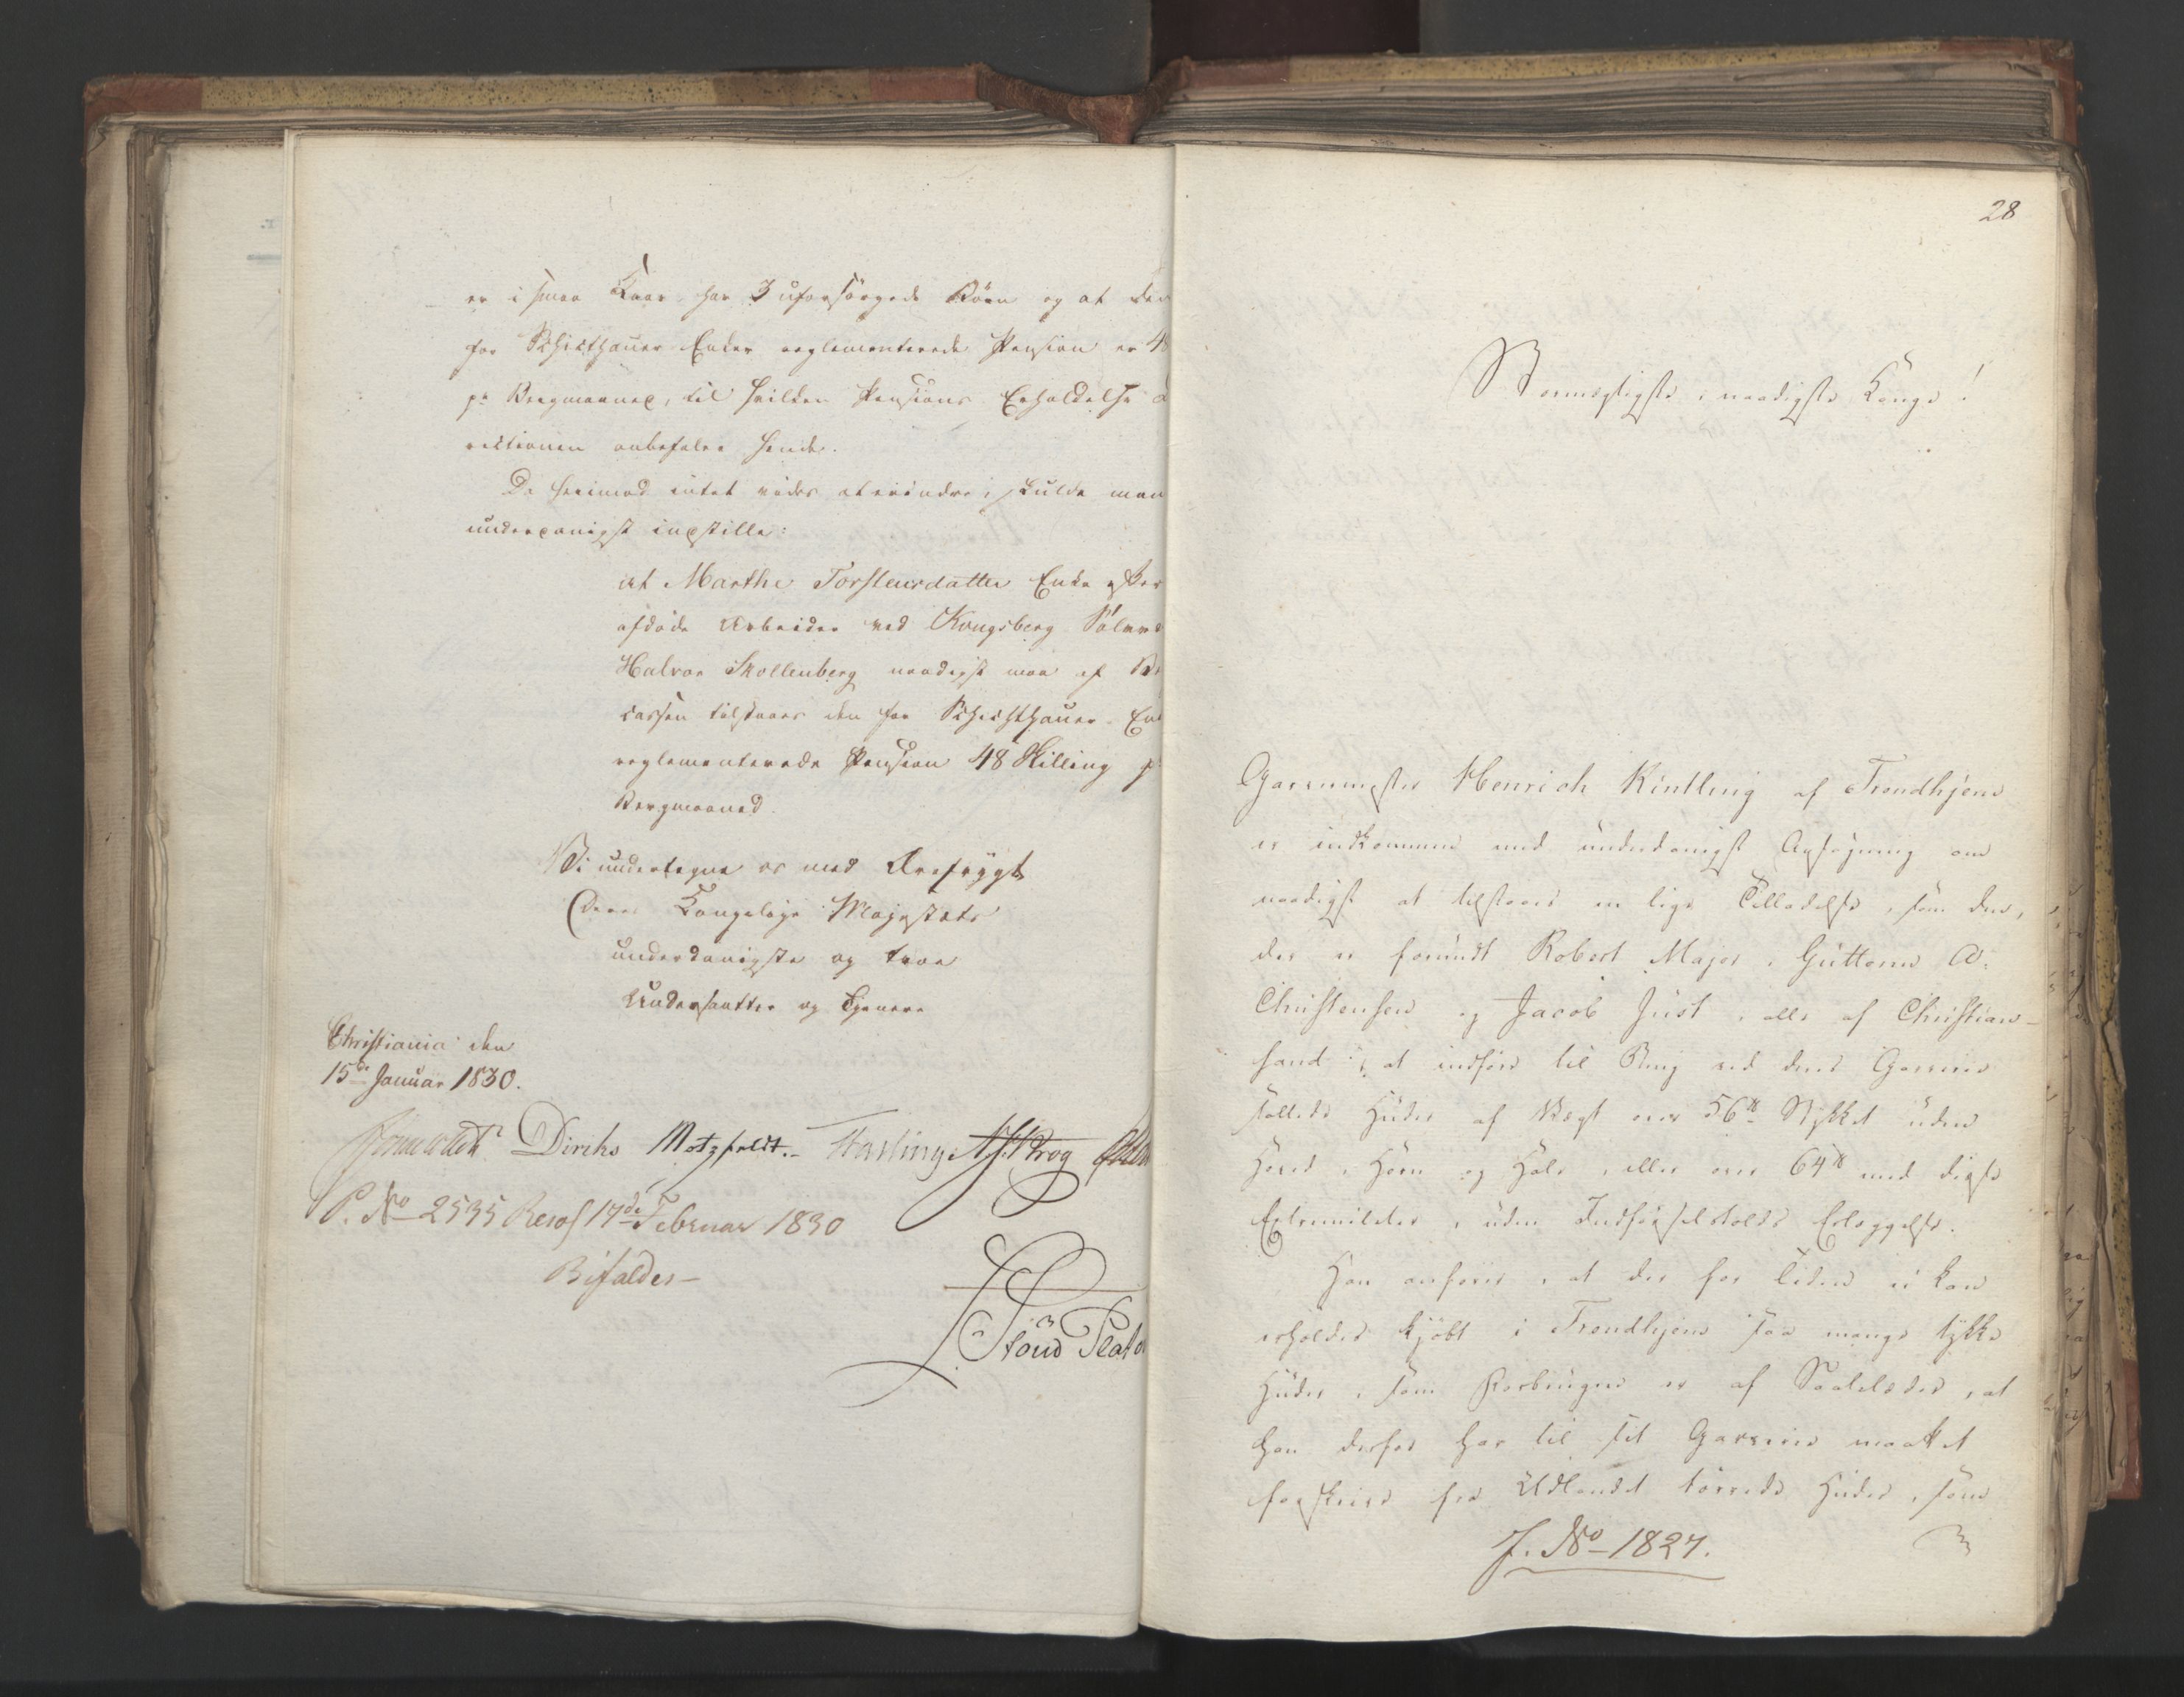 er i smaa Kaar, har 3 uforsörgede Börn og at den
for Schichthauer Enker reglementerede Pension er 48
pr Bergmaaned, til hvilken Pensions Erholdelse
rektionen anbefaler hende.
Da herimod intet vides at erindre, skulde man
underdanigst indstille:
at Marthe Torstensdatter Enke efter
afdøde Arbeider ved Kongsberg Sölvv
Halvor Skollenberg naadigst maa af
cassen tilstaaes den for Schichthauer Enk
reglementerede Pension 48 Skilling pr
Bergmaaned.
Vi undertegne os med Ærefrygt
Deres Kongelige Majestæts
underdanigste og troe
Undersaatter og Tjenere
Christiania den
15de Januar 1830.
Diriks Motzfeldt. N. J. Krog
P. No 2535 Resol 17de Februar 1830
Bifaldes
Platou
28
Stormægtigste, naadigste Konge!
Garvermester Henrich Kintling af Trondhjem
er indkommen med underdanigst Ansøgning om
naadigst at tilstaaes en lige Tilladelse, som den,
der er forundt Robert Major, Guttorm A.
Christensen og Jacob Just, alle af Christian-
sand: at indføre til Brug ved deres Garverie
saltede Huder af Vægt over 56 ℔ Stykket uden
Hoved, Horn og Hale, eller over 64 ℔ med disse
Extremiteter, uden Indførselstolds Erlæggelse.
Han anfører, at der for Tiden ei kan
erholdes kjøbt i Trondhjem saa mange tykke
Huder, som Forbrugen er af Saalelæder, at
han derfor har til sit Garverie maattet
forskrive fra Udlandet tørrede Huder, som
J. No 1827.